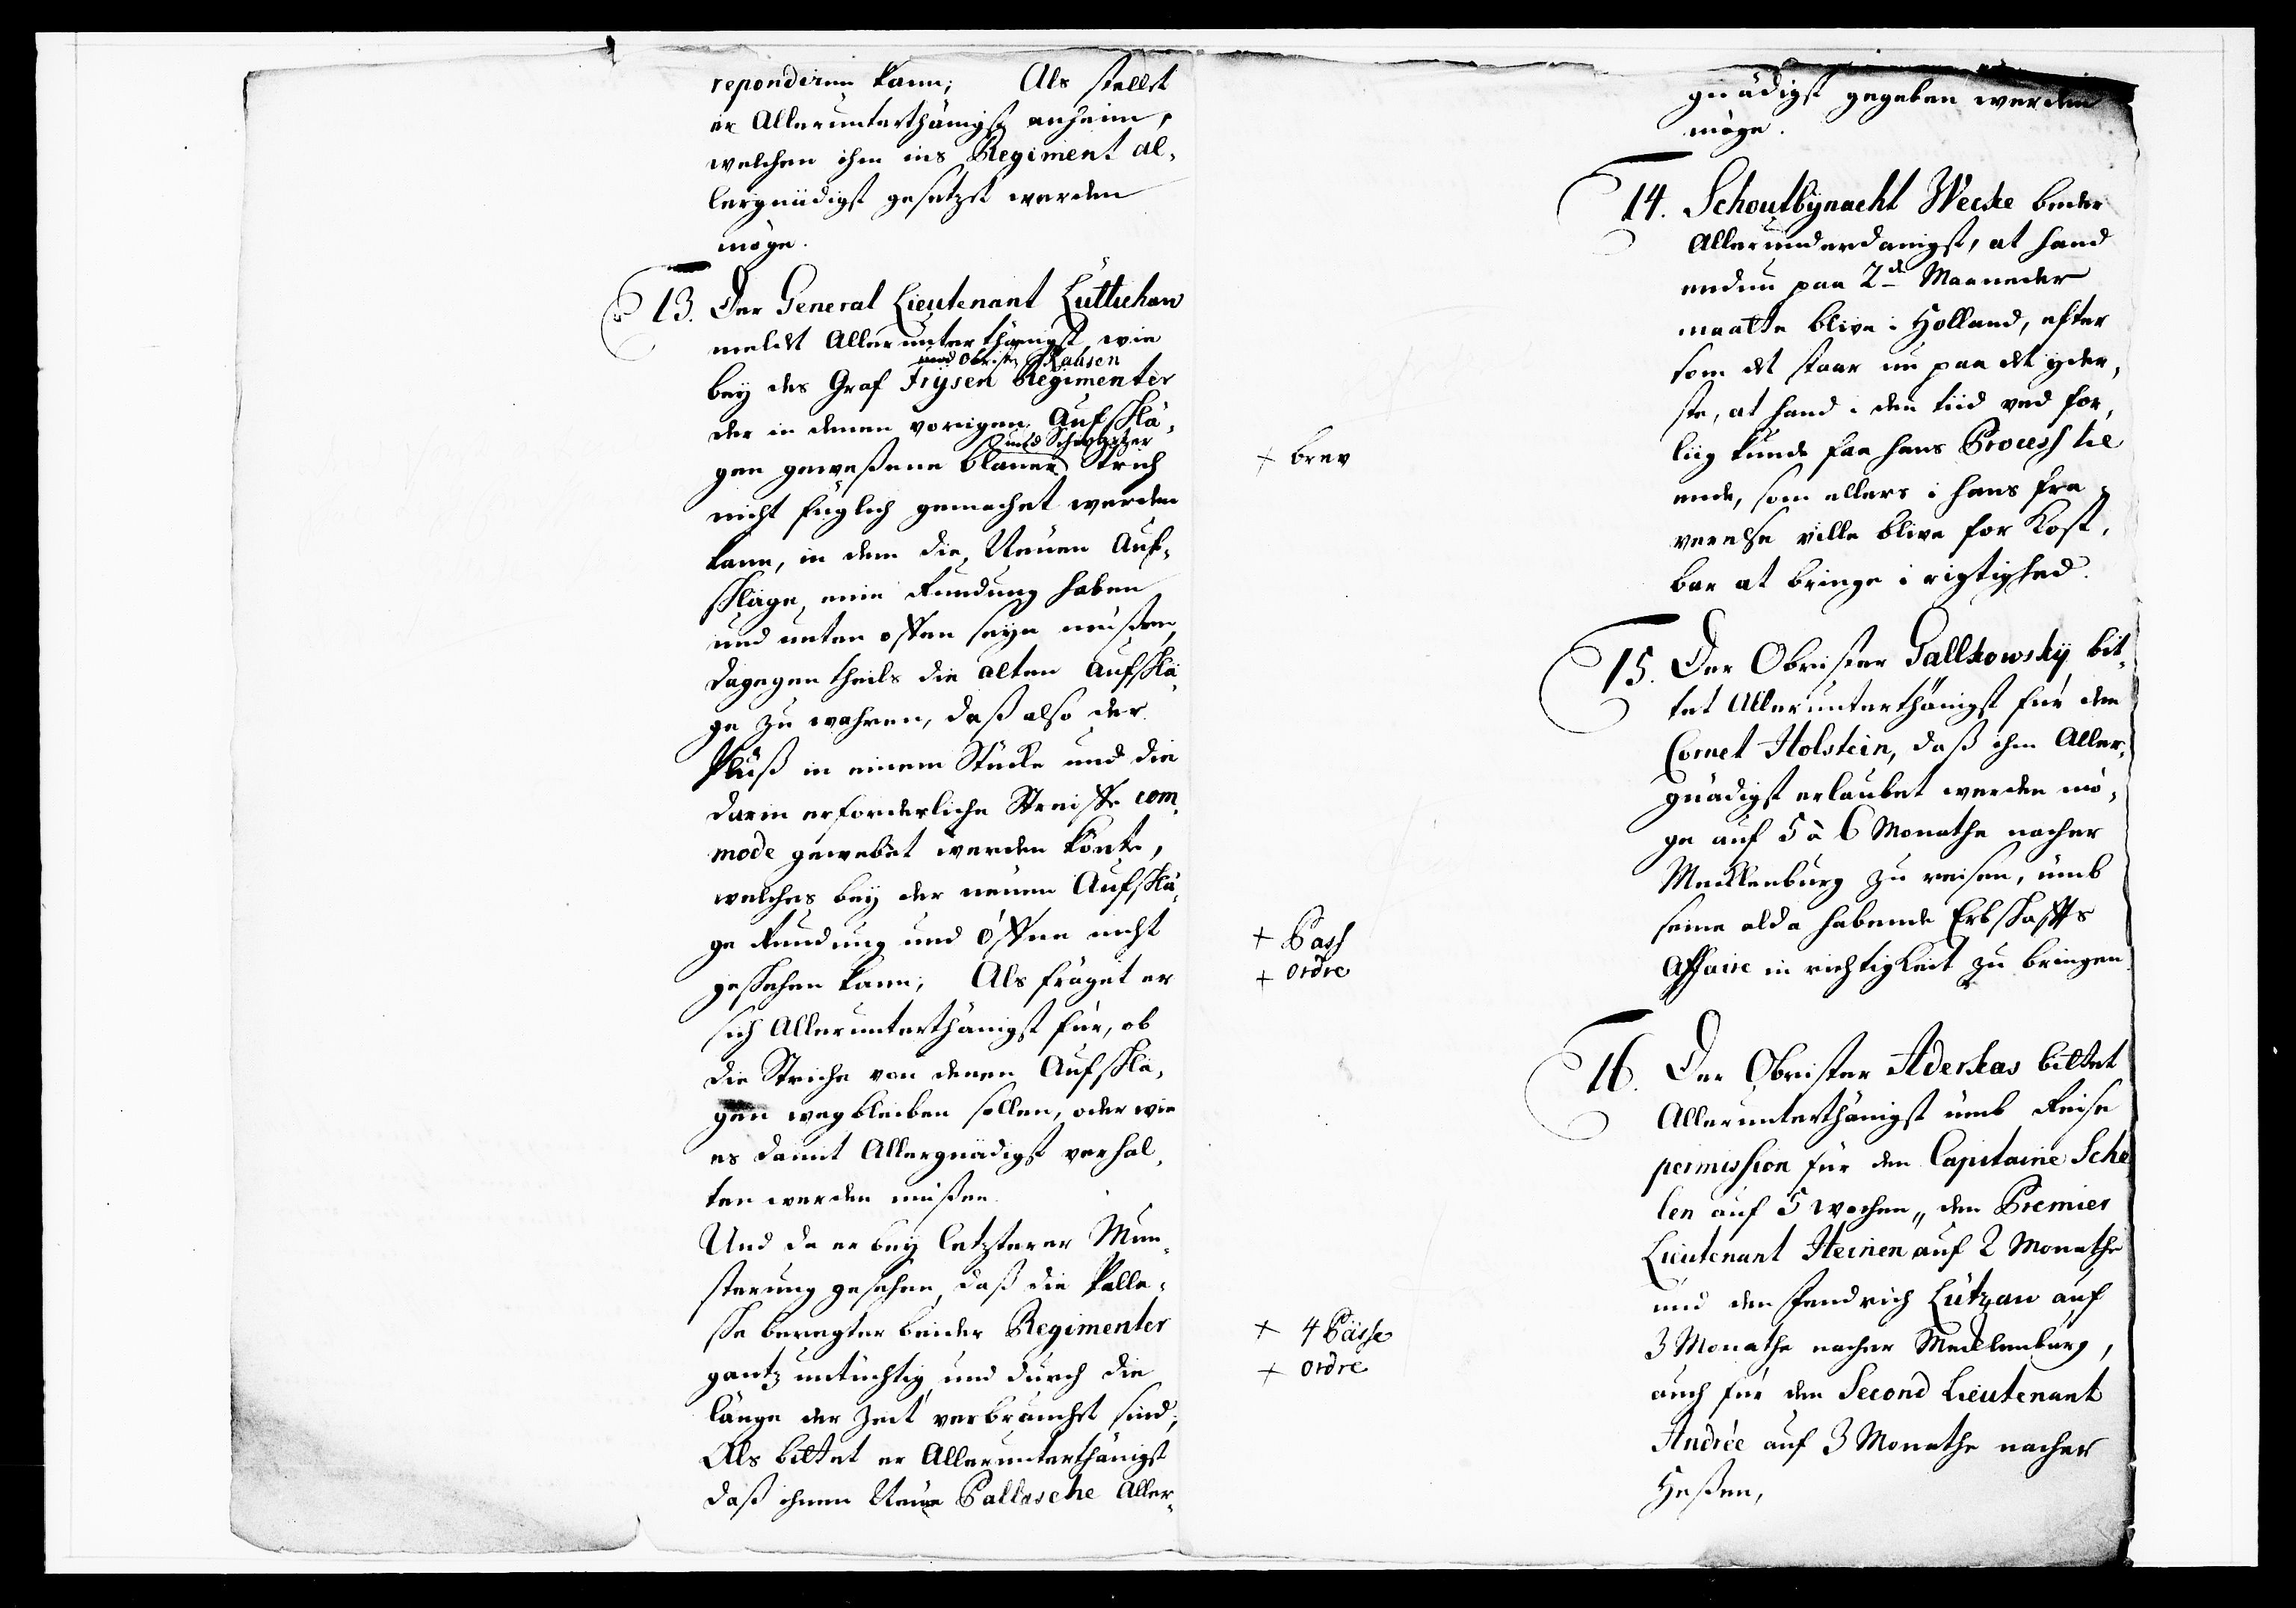 repondiren kann; Als stellet
er Allerunterthänigst anheim,
welchen ihm ins Regiment al-
lergnädigst gesetzet werden
möge.
13. Der General Lieutenant Lüttichau
meldet Allerunterthänigst, wie
und Obrist Rabsen
bey des Graf Frysen Regimenter
der in denen vorigen Aufschlä-
und Schwartzer
gen geweßene blauer Strich
nicht füglich gemachet werden
kann, in dem die Neuen Auf-
schläge, eine Rundung haben
und unten offen seyn müßen,
dagegen theils die alten Aufschlä-
ge zu wahren, daß also der
Plüß in einem Stücke und die
darin erforderliche Streiffe com-
mode gewebet werden könte,
welches bey der neuen Aufschlä-
ge Rundung und öffne nicht
geschehen kann; Als fräget er
sich Allerunterthänigst für, ob
die Striche von denen Aufschlä-
gen wegbleiben sollen, oder wie
es damit Allergnädigst verhal-
ten werden müßen.
Und da er bey letzterer Mun-
sterung gesehen, daß die Palla-
sche beregter beider Regimenter
gantz untüchtig und durch die
länge der Zeit verbrauchet sind;
Als bittet er Allerunterthänigst
daß ihnen Neue Pallasche Aller-
+ brev
+ Pass
+ ordre
+ 4 Pässe
+ ordre
gnädigst gegeben werden
möge.
14. Schoutbynacht Wecke beder
Allerunderdanigst, at hand
endnu paa 2de Maaneder
maatte blive i Holland, efter
som det staar nu paa det yder-
ste, at hand i den tiid ved for-
lig kunde faa hans Process til
ende, som ellers i hans fra-
verelse ville blive for Kost-
bar at bringe i rigtighed.
15. Der Obrister Gallkowsky bit-
tet Allerunterthänigst für den
Cornet Holstein, daß ihm Aller-
gnädigst erlaubet werden mö-
ge auf 5 à 6 Monathe nacher
Mecklenburg zu reisen, umb
seine alda habende Erbschaffts
Affaire in richtigkeit zu bringen.
16. Der Obrister Aderkas bittet
Allerunterthänigst umb Reise
permission für den Capitaine Sche
len auf 5 wochen, den Premier
Lieutenant Heinen auf 2 Monathe
und den Fendrich Lützau auf
3 Monathe nacher Mecklenburg,
auch für den Second Lieutenant
Andrée auf 3 Monathe nacher
Heßen,